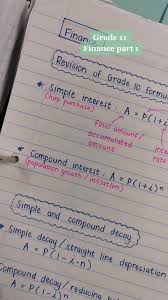 Grade 11
Finance part 1
Finan
Revision of Grade 10 formu
* Simple interest : A = P(1+i
(hire purchase)
final amount/
accumulated
amount
* Compound interest : A = P(1+i)ⁿ
(population growth / inflation)
Simple and compound decay
* Simple decay/straight line depreciation
A = P(1-i·n)
Compound decay/reducing
A = P(1-i)